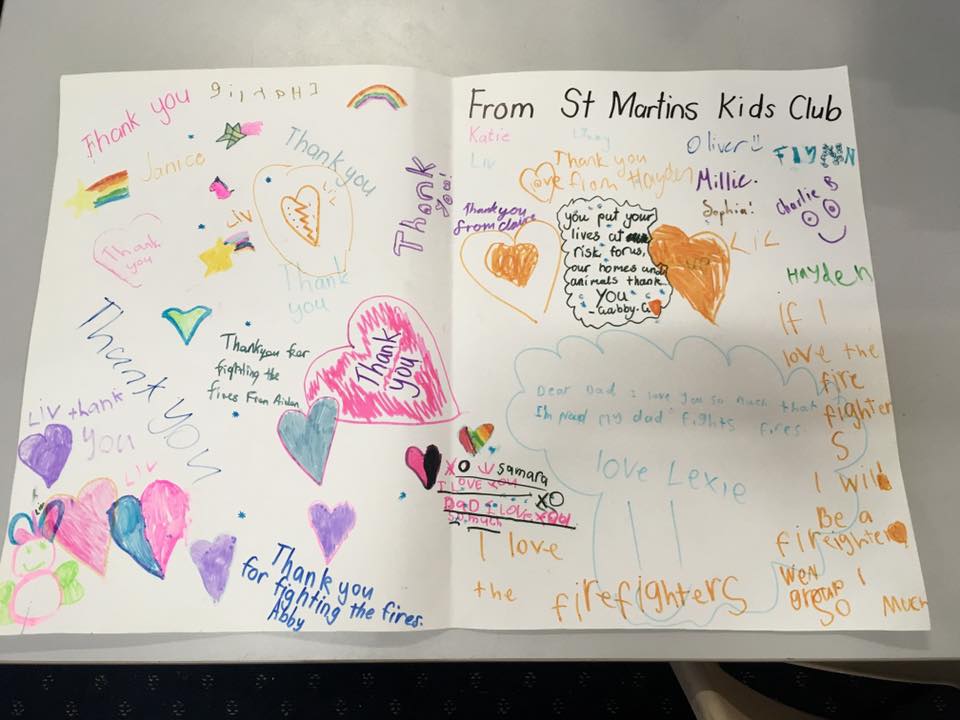 Thank you
Charlie
Janice
Thank
you
Liv
Thankyou
Thank
you
Thank
you!
Thank you
Thankyou for
fighting the
fires From Aidan
Thank
you
Liv thank
you
Liv
Thank you
for fighting the fires.
Abby
From St Martins Kids Club
Katie
Liv
Thank you
love from Hayden
Oliver
FLYNN
Millie.
Sophia!
Charlie B
Thankyou
from Claire
you put your
lives at
risk for us,
our homes and
animals thank
you
-Gabby.G
Hayden
Dear Dad I love you so much that
Im proud my dad fights fires.
love Lexie
XO samara
I LOVE YOU
XO
DaD I LOVE YOU
so much
I love
the firefighters
If I
love the
fire
fighter
s
I will
Be a
firfighter
wen I
group
so much